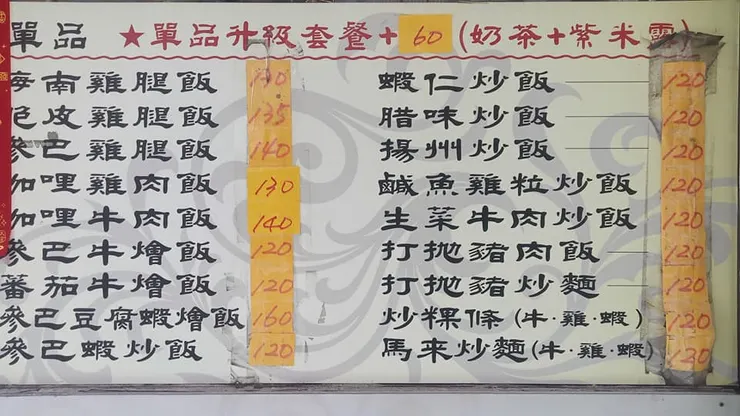 單品 ★單品升級套餐+60(奶茶+紫米露)
海南雞腿飯 130
脆皮雞腿飯 135
參巴雞腿飯 140
咖哩雞肉飯 130
咖哩牛肉飯 140
參巴牛燴飯 120
蕃茄牛燴飯 120
參巴豆腐蝦燴飯 160
參巴蝦炒飯 120
蝦仁炒飯 120
腊味炒飯 120
揚州炒飯 120
鹹魚雞粒炒飯 120
生菜牛肉炒飯 120
打拋豬肉飯 120
打拋豬炒麵 120
炒粿條(牛·雞·蝦) 120
馬来炒麵(牛·雞·蝦) 130